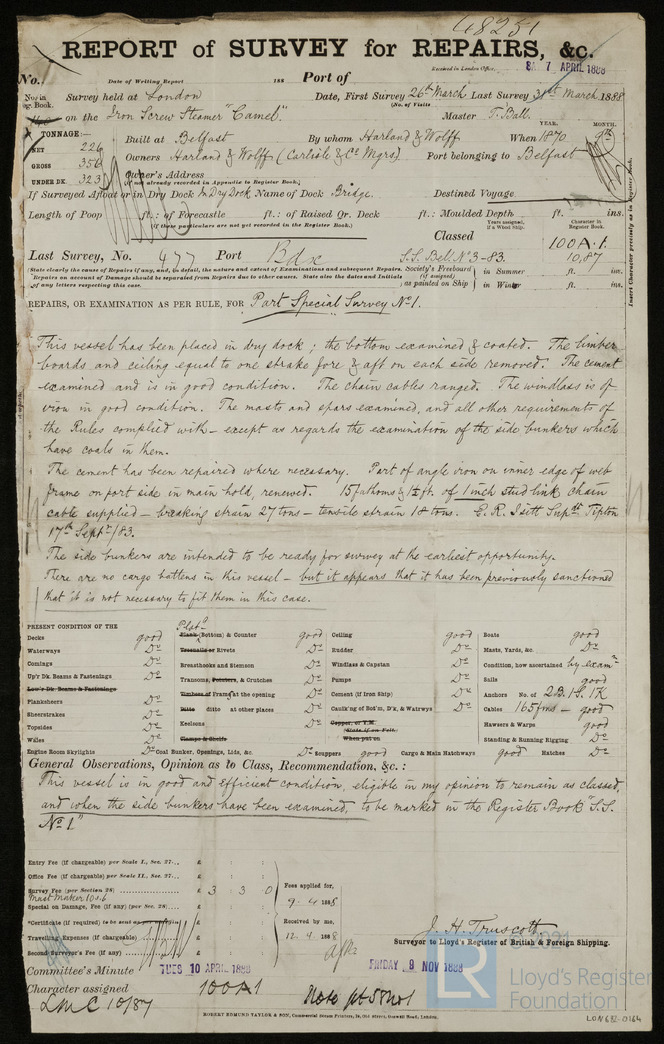 48251
REPORT of SURVEY for REPAIRS, &c.
Received in London Office,
7 APRIL 1888
No.
Date of Writing Report 188 Port of
No. in Reg. Book.
Survey held at London Date, First Survey 26th March Last Survey 31st March 1888
(No. of Visits
on the Iron Screw Steamer "Camel". Master T. Ball
TONNAGE:—
NET 226
GROSS 356
UNDER DK. 323
YEAR. MONTH.
Built at Belfast By whom Harland & Wolff When 1870 9th
Owners Harland & Wolff (Carlisle & Co Mgrs) Port belonging to Belfast
Owner's Address
(if not already recorded in Appendix to Register Book.)
If Surveyed Afloat or in Dry Dock In Dry Dock Name of Dock Bridge. Destined Voyage
Length of Poop ft.: of Forecastle ft.: of Raised Qr. Deck ft.: Moulded Depth ft. ins.
(if these particulars are not yet recorded in the Register Book.)
Years assigned, if a Wood Ship.
Character in Register Book.
Insert Character precisely as in Register Book.
Classed 100A.1.
Last Survey, No. 477 Port Bdx S.S. Bel. No 3-83. 10,87
(State clearly the cause of Repairs if any, and, in detail, the nature and extent of Examinations and subsequent Repairs.
Repairs on account of Damage should be separated from Repairs due to other causes. State also the dates and Initials
of any letters respecting this case.
Society's Freeboard (if assigned) as painted on Ship
in Summer ft. ins.
in Winter ft. ins.
REPAIRS, OR EXAMINATION AS PER RULE, FOR Part Special Survey No 1.
This vessel has been placed in dry dock; the bottom examined & coated. The limber
boards and ceiling equal to one strake fore & aft on each side removed. The cement
examined and is in good condition. The chain cables ranged. The windlass is of
iron in good condition. The masts and spars examined, and all other requirements of
the Rules complied with — except as regards the examination of the side bunkers which
have coals in them.
The cement has been repaired where necessary. Part of angle iron on inner edge of web
frame on port side in main hold, renewed. 15 fathoms & 1½ ft. of 1 inch stud link chain
cable supplied — breaking strain 27 tons — tensile strain 18 tons. E. R. Isett Supdt Tipton
17th Septr/83.
The side bunkers are intended to be ready for survey at the earliest opportunity.
There are no cargo battens in this vessel — but it appears that it has been previously sanctioned
that it is not necessary to fit them in this case.
PRESENT CONDITION OF THE
Decks good
Waterways Do
Comings Do
Up'r Dk. Beams & Fastenings Do
Low'r Dk. Beams & Fastenings
Planksheers Do
Sheerstrakes Do
Topsides Do
Wales Do
Engine Room Skylights Do
Plank (Bottom) & Counter good
Treenails or Rivets Do
Breasthooks and Stemson Do
Transoms, Pointers, & Crutches Do
Timbers of Frame at the opening Do
Ditto ditto at other places Do
Keelsons Do
Clamps & Shelfs
Coal Bunker, Openings, Lids, &c. Do
Ceiling good
Rudder Do
Windlass & Capstan Do
Pumps Do
Cement (if Iron Ship) Do
Caulk'g of Bot'm, D'k, & Watrwys Do
Copper, or Y.M.
(State if on Felt.)
When put on
Scuppers good
Cargo & Main Hatchways good
Boats good
Masts, Yards, &c. Do
Condition, how ascertained by examn
Sails good
Anchors No. of 2B. 1S. 1K
Cables 165 fms — good
Hawsers & Warps good
Standing & Running Rigging Do
Hatches Do
General Observations, Opinion as to Class, Recommendation, &c.:
This vessel is in good and efficient condition, eligible in my opinion to remain as classed,
and when the side bunkers have been examined, to be marked in the Register Book "S.S.
No 1"
Entry Fee (if chargeable) per Scale I., Sec. 27...
Office Fee (if chargeable) per Scale II., Sec. 27...
Survey Fee (per Section 28) £ 3 : 3 : 0
Special on Damage, Fee (if any) (per Sec. 28)
*Certificate (if required) to be sent as per margin
Travelling Expenses (if chargeable)
Second Surveyor's Fee (if any)
Fees applied for,
9. 4. 1888
Received by me,
12. 4. 1888
J. H. Truscott
Surveyor to Lloyd's Register of British & Foreign Shipping.
Committee's Minute TUES 10 APRIL 1888 FRIDAY 9 NOV 1888
Character assigned 100A1
LMC 10/87
ROBERT EDMUND TAYLOR & SON, Commercial Steam Printers, 19, Old street, Goswell Road, London.
© 2021
LR
Lloyd's Register
Foundation
LON682-0164